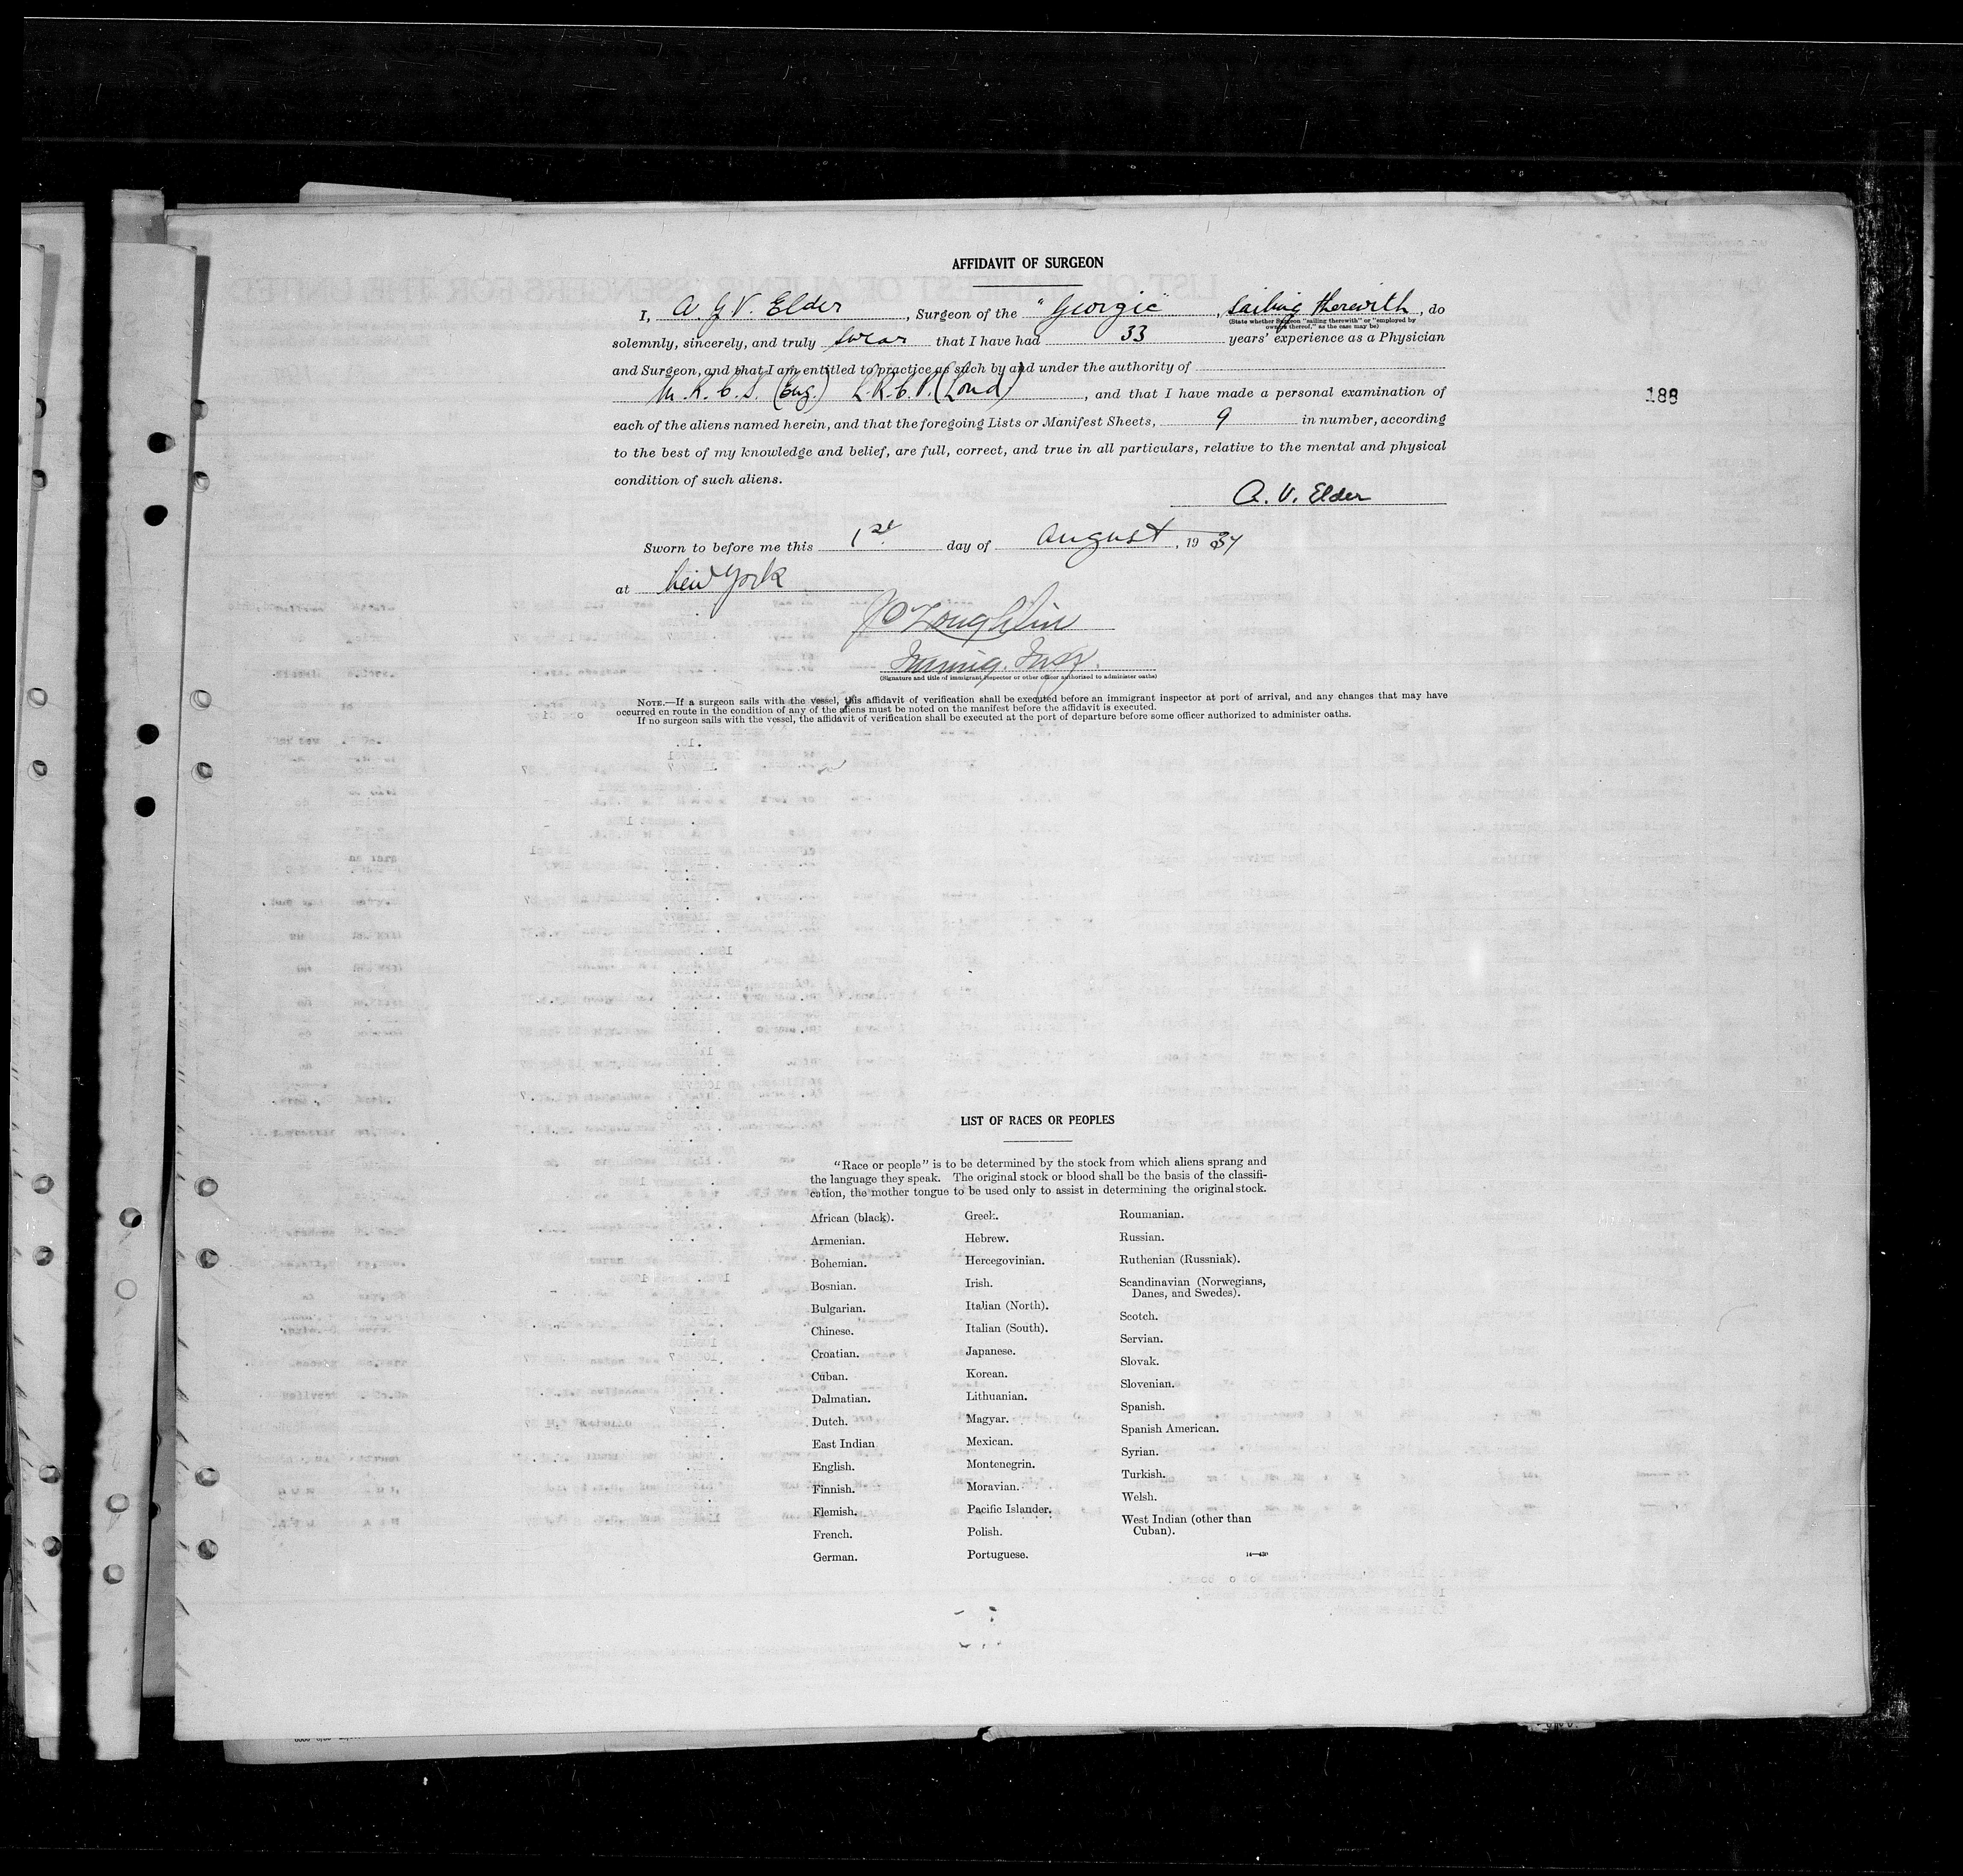 AFFIDAVIT OF SURGEON
I, A. G V. Elder, Surgeon of the "Georgic", sailing therewith, do
(State whether Surgeon "sailing therewith" or "employed by
owners thereof," as the case may be)
solemnly, sincerely, and truly swear that I have had 33 years' experience as a Physician
and Surgeon, and that I am entitled to practice as such by and under the authority of
M.R.C.S. (Eng.) L.R.C.P. (Lond), and that I have made a personal examination of
188
each of the aliens named herein, and that the foregoing Lists or Manifest Sheets, 9 in number, according
to the best of my knowledge and belief, are full, correct, and true in all particulars, relative to the mental and physical
condition of such aliens.
A. V. Elder
Sworn to before me this 1st day of August, 1937
at New York
Immig. Insp.
(Signature and title of immigrant inspector or other officer authorized to administer oaths)
NOTE.—If a surgeon sails with the vessel, this affidavit of verification shall be executed before an immigrant inspector at port of arrival, and any changes that may have
occurred en route in the condition of any of the aliens must be noted on the manifest before the affidavit is executed.
If no surgeon sails with the vessel, the affidavit of verification shall be executed at the port of departure before some officer authorized to administer oaths.
LIST OF RACES OR PEOPLES
"Race or people" is to be determined by the stock from which aliens sprang and
the language they speak. The original stock or blood shall be the basis of the classifi-
cation, the mother tongue to be used only to assist in determining the original stock.
African (black).
Armenian.
Bohemian.
Bosnian.
Bulgarian.
Chinese.
Croatian.
Cuban.
Dalmatian.
Dutch.
East Indian
English.
Finnish.
Flemish.
French.
German.
Greek.
Hebrew.
Hercegovinian.
Irish.
Italian (North).
Italian (South).
Japanese.
Korean.
Lithuanian.
Magyar.
Mexican.
Montenegrin.
Moravian.
Pacific Islander.
Polish.
Portuguese.
Roumanian.
Russian.
Ruthenian (Russniak).
Scandinavian (Norwegians,
Danes, and Swedes).
Scotch.
Servian.
Slovak.
Slovenian.
Spanish.
Spanish American.
Syrian.
Turkish.
Welsh.
West Indian (other than
Cuban).